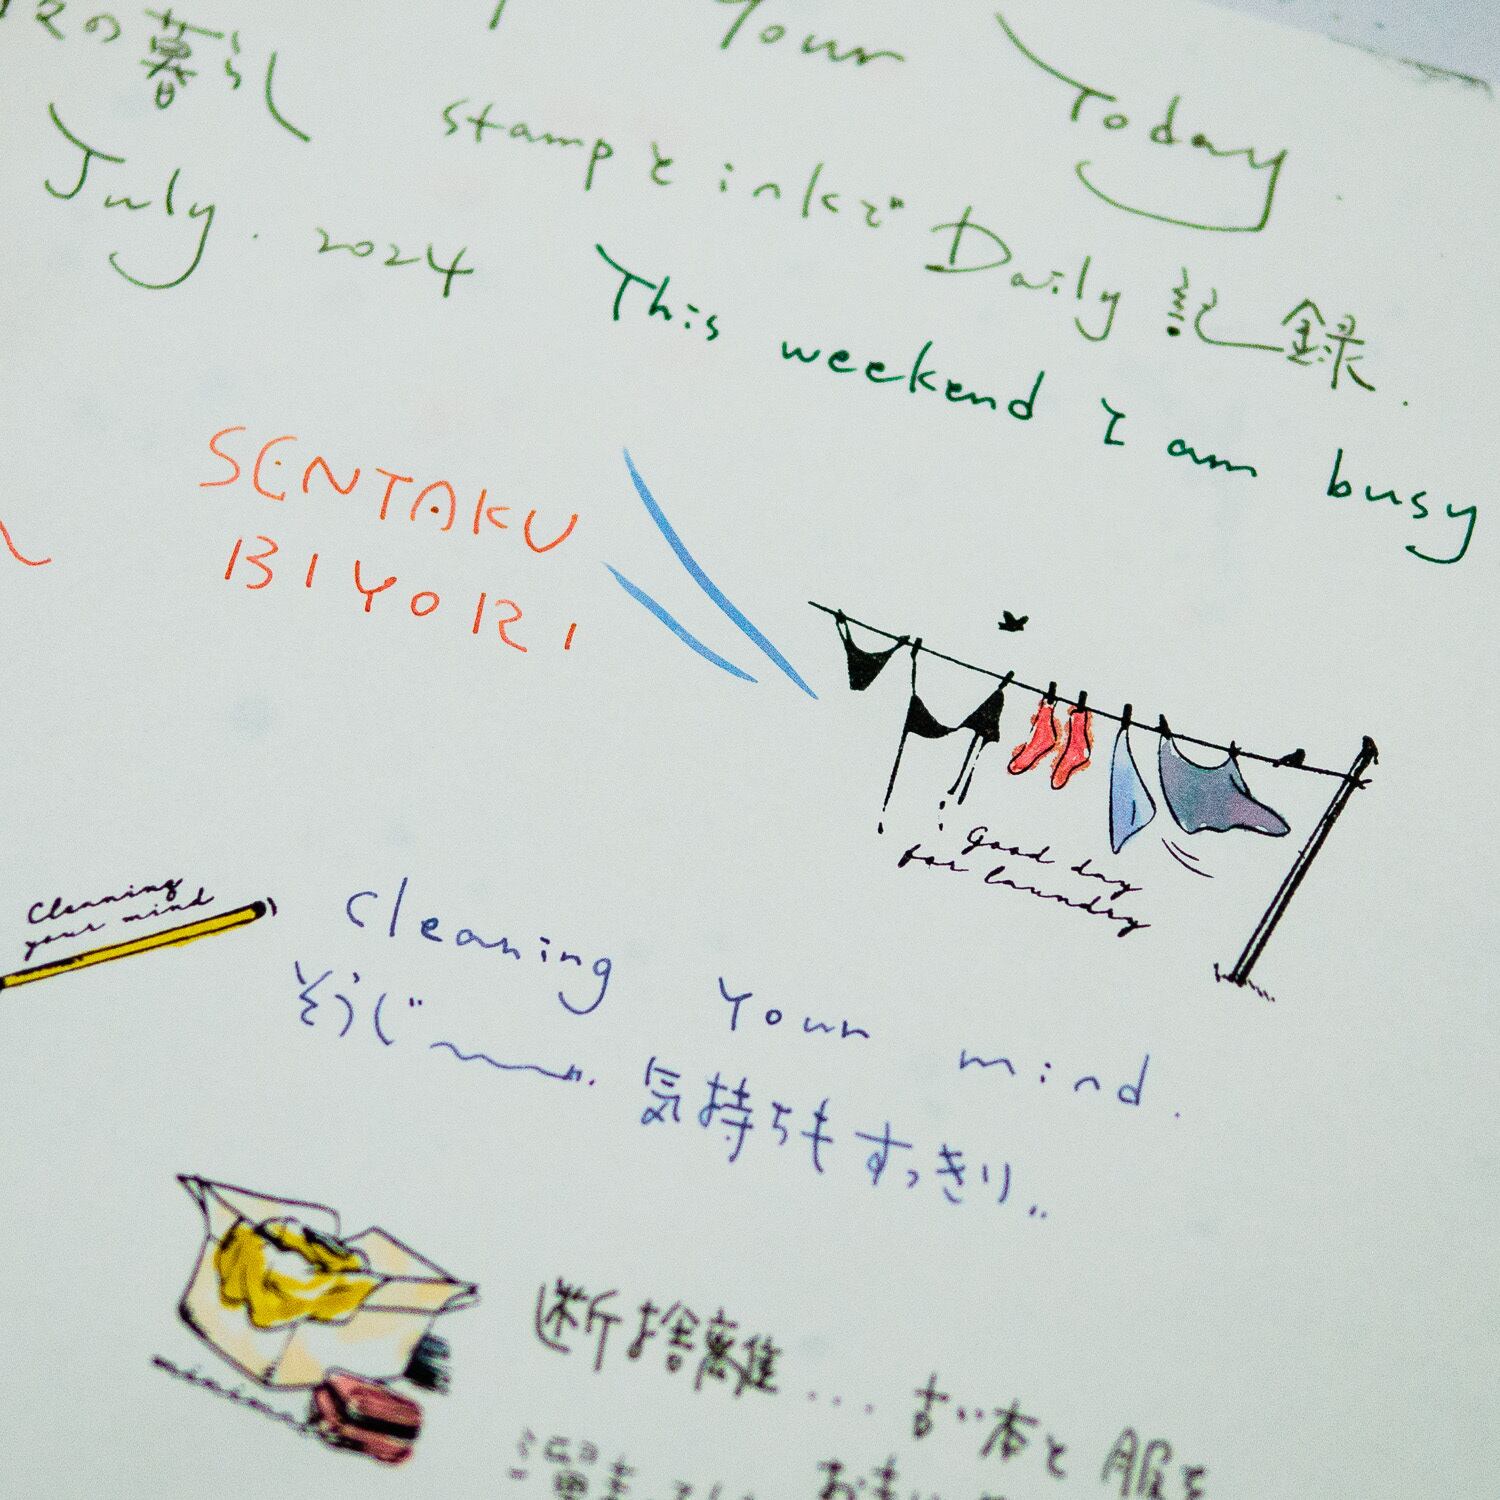 Your Today.
々の暮らし stampとinkで Daily 記録.
July. 2024 This weekend I am busy
SENTAKU
BIYORI
Good day
for laundry
Cleaning
your mind
Cleaning Your mind.
そうじ〜〜〜.. 気持ちもすっきり..
minima
断捨離... 古い本と服を